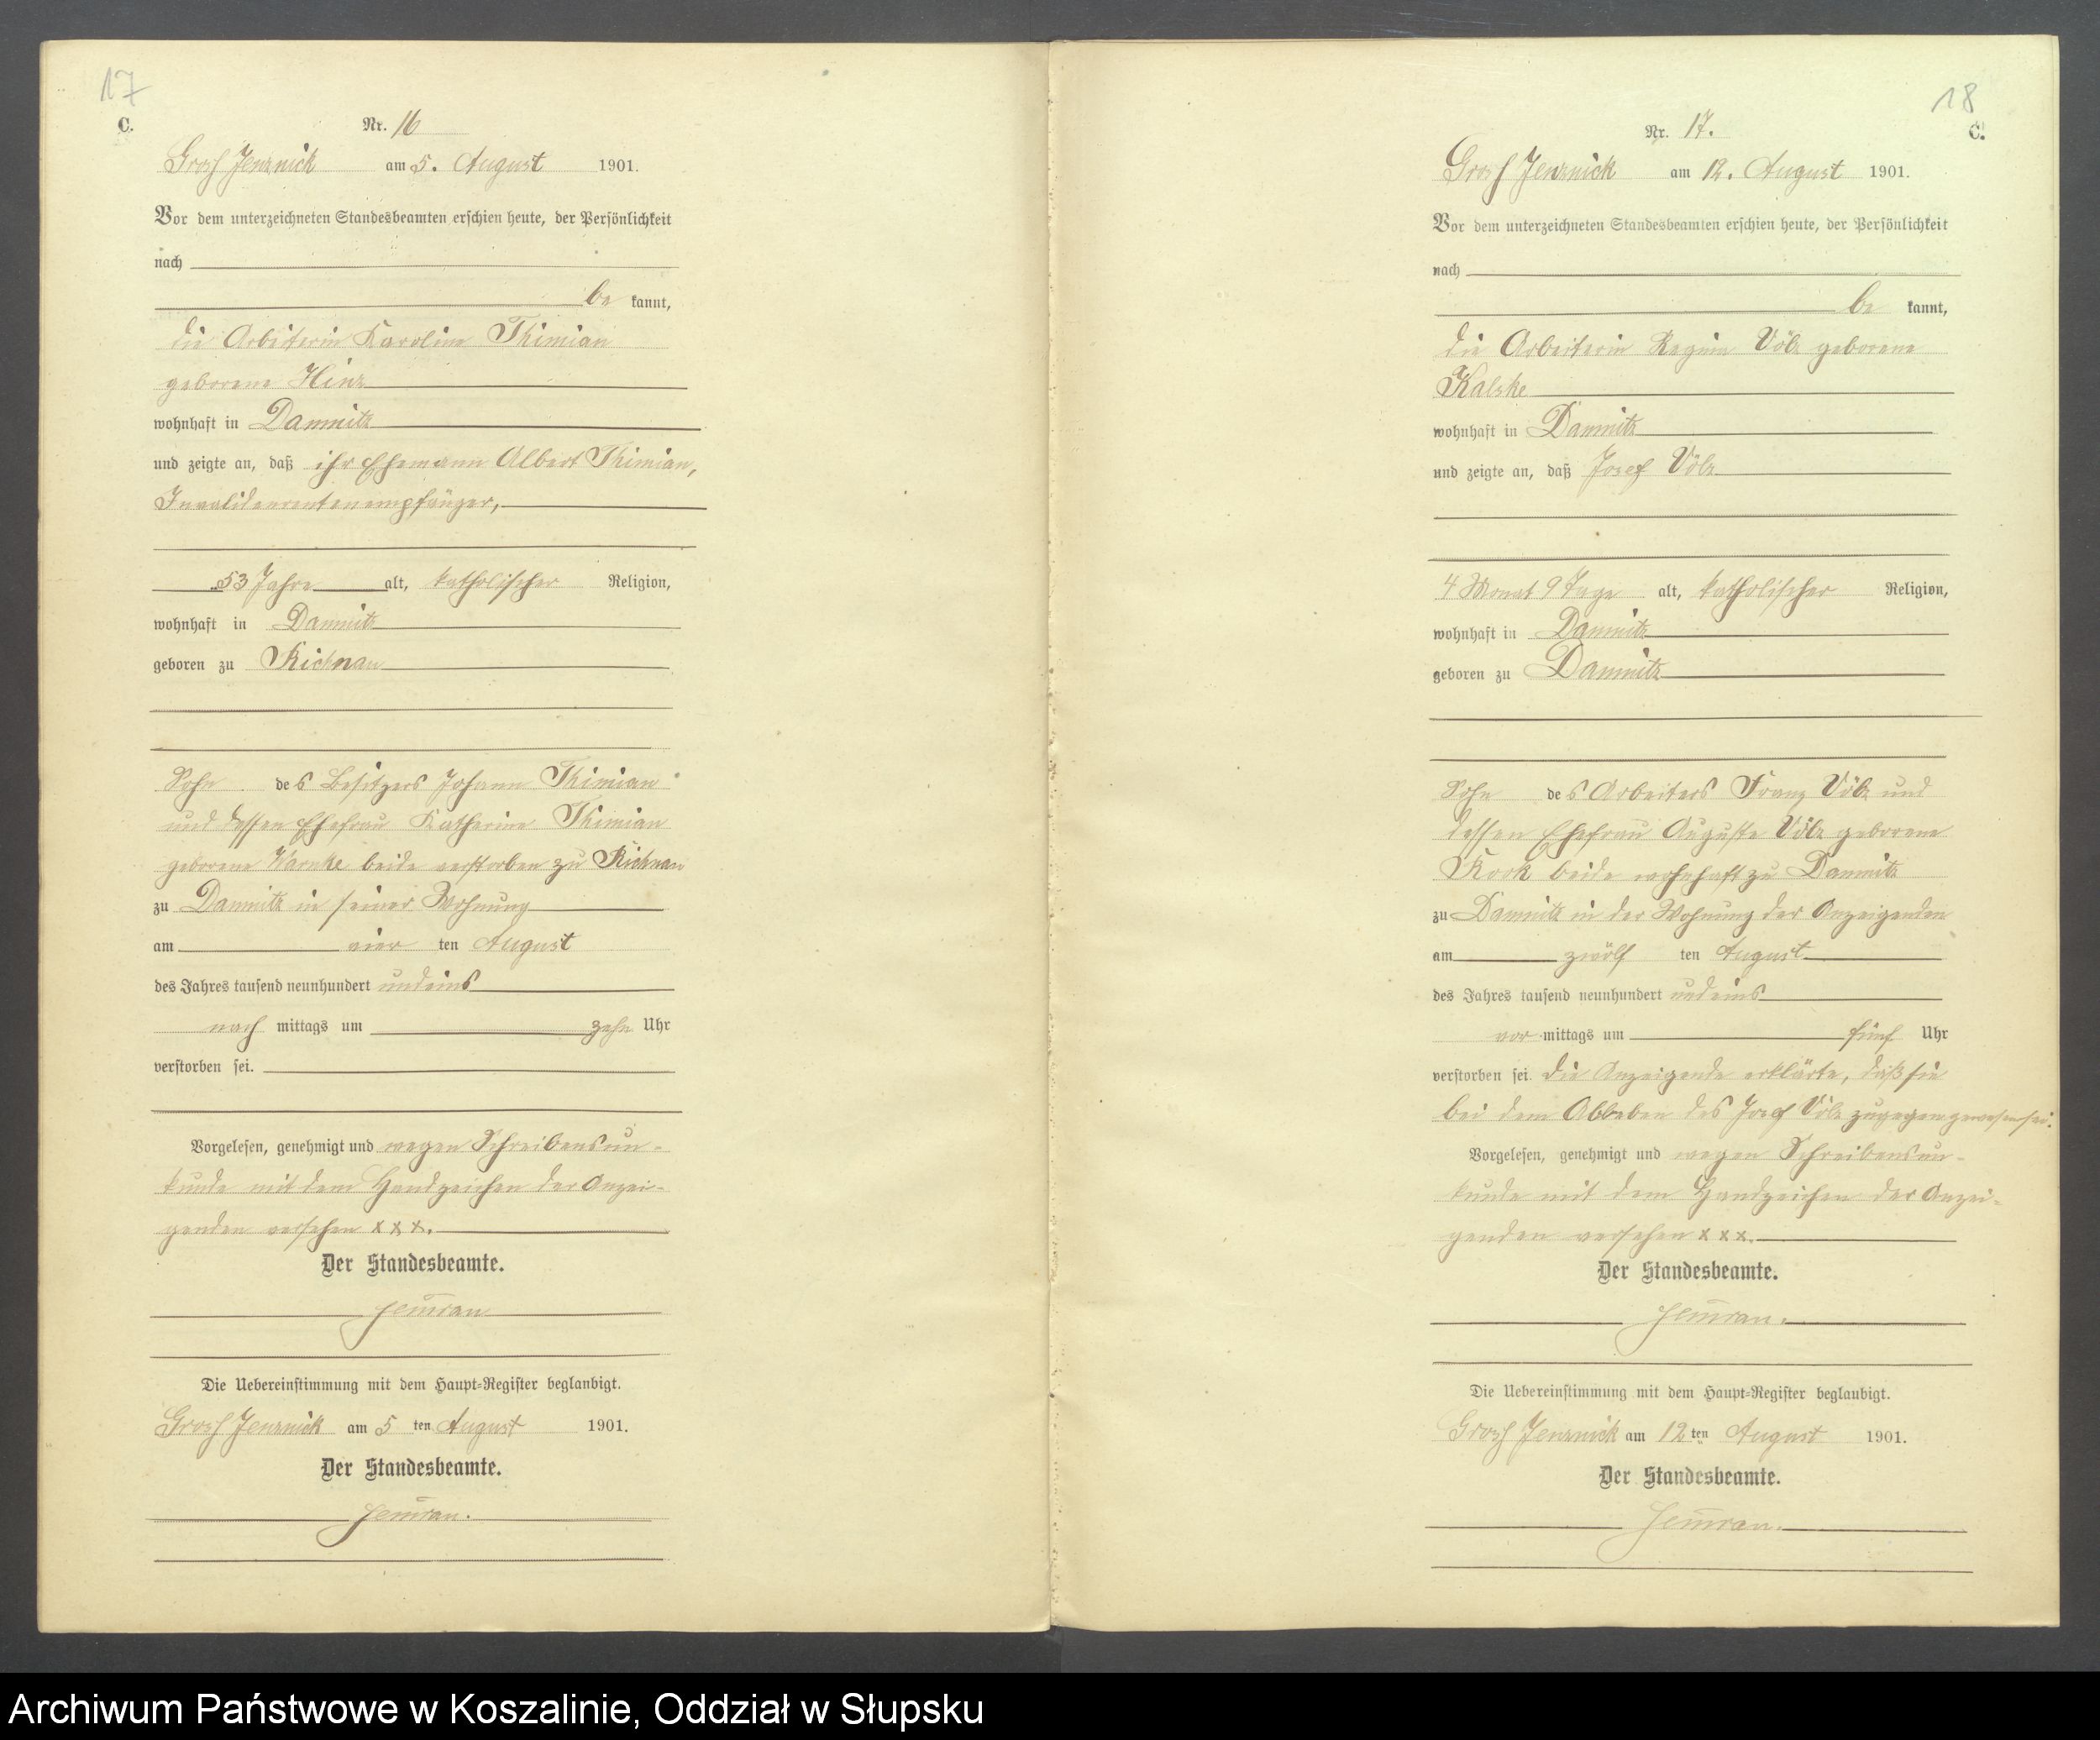 17
C.
Nr. 16
Groß Jenznick am 5. August 1901.
Vor dem unterzeichneten Standesbeamten erschien heute, der Persönlichkeit
nach
be kannt,
die Arbeiterin Karoline Thimian
geborene Hinz
wohnhaft in Damnitz
und zeigte an, daß ihr Ehemann Albert Thimian,
Invalidenrentenempfänger,
53 Jahre alt, katholischer Religion,
wohnhaft in Damnitz
geboren zu Richnau
Sohn des Besitzers Johann Thimian
und dessen Ehefrau Katharine Thimian
geborene Warnke beide verstorben zu Richnau
zu Damnitz in seiner Wohnung
am vier ten August
des Jahres tausend neunhundert undeins
nach mittags um zehn Uhr
verstorben sei.
Vorgelesen, genehmigt und wegen Schreibensun-
kunde mit dem Handzeichen der Anzei-
genden versehen x x x.
Der Standesbeamte.
Die Uebereinstimmung mit dem Haupt-Register beglaubigt.
Groß Jenznick am 5 ten August 1901.
Der Standesbeamte.
18
C.
Nr. 17.
Groß Jenznick am 12. August 1901.
Vor dem unterzeichneten Standesbeamten erschien heute, der Persönlichkeit
nach
be kannt,
die Arbeiterin Regina Völz geborene
Kalske
wohnhaft in Damnitz
und zeigte an, daß Josef Völz
4 Monat 9 Tage alt, katholischer Religion,
wohnhaft in Damnitz
geboren zu Damnitz
Sohn des Arbeiters Franz Völz und
dessen Ehefrau Auguste Völz geborene
Kook beide wohnhaft zu Damnitz
zu Damnitz in der Wohnung der Anzeigenden
am zwölf ten August
des Jahres tausend neunhundert undeins
vor mittags um fünf Uhr
verstorben sei. Die Anzeigende erklärte, daß sie
bei dem Ableben des Josef Völz zugegen gewesen sei.
Vorgelesen, genehmigt und wegen Schreibensun-
kunde mit dem Handzeichen der Anzei-
genden versehen x x x.
Der Standesbeamte.
Die Uebereinstimmung mit dem Haupt-Register beglaubigt.
Groß Jenznick am 12 ten August 1901.
Der Standesbeamte.
Archiwum Państwowe w Koszalinie, Oddział w Słupsku